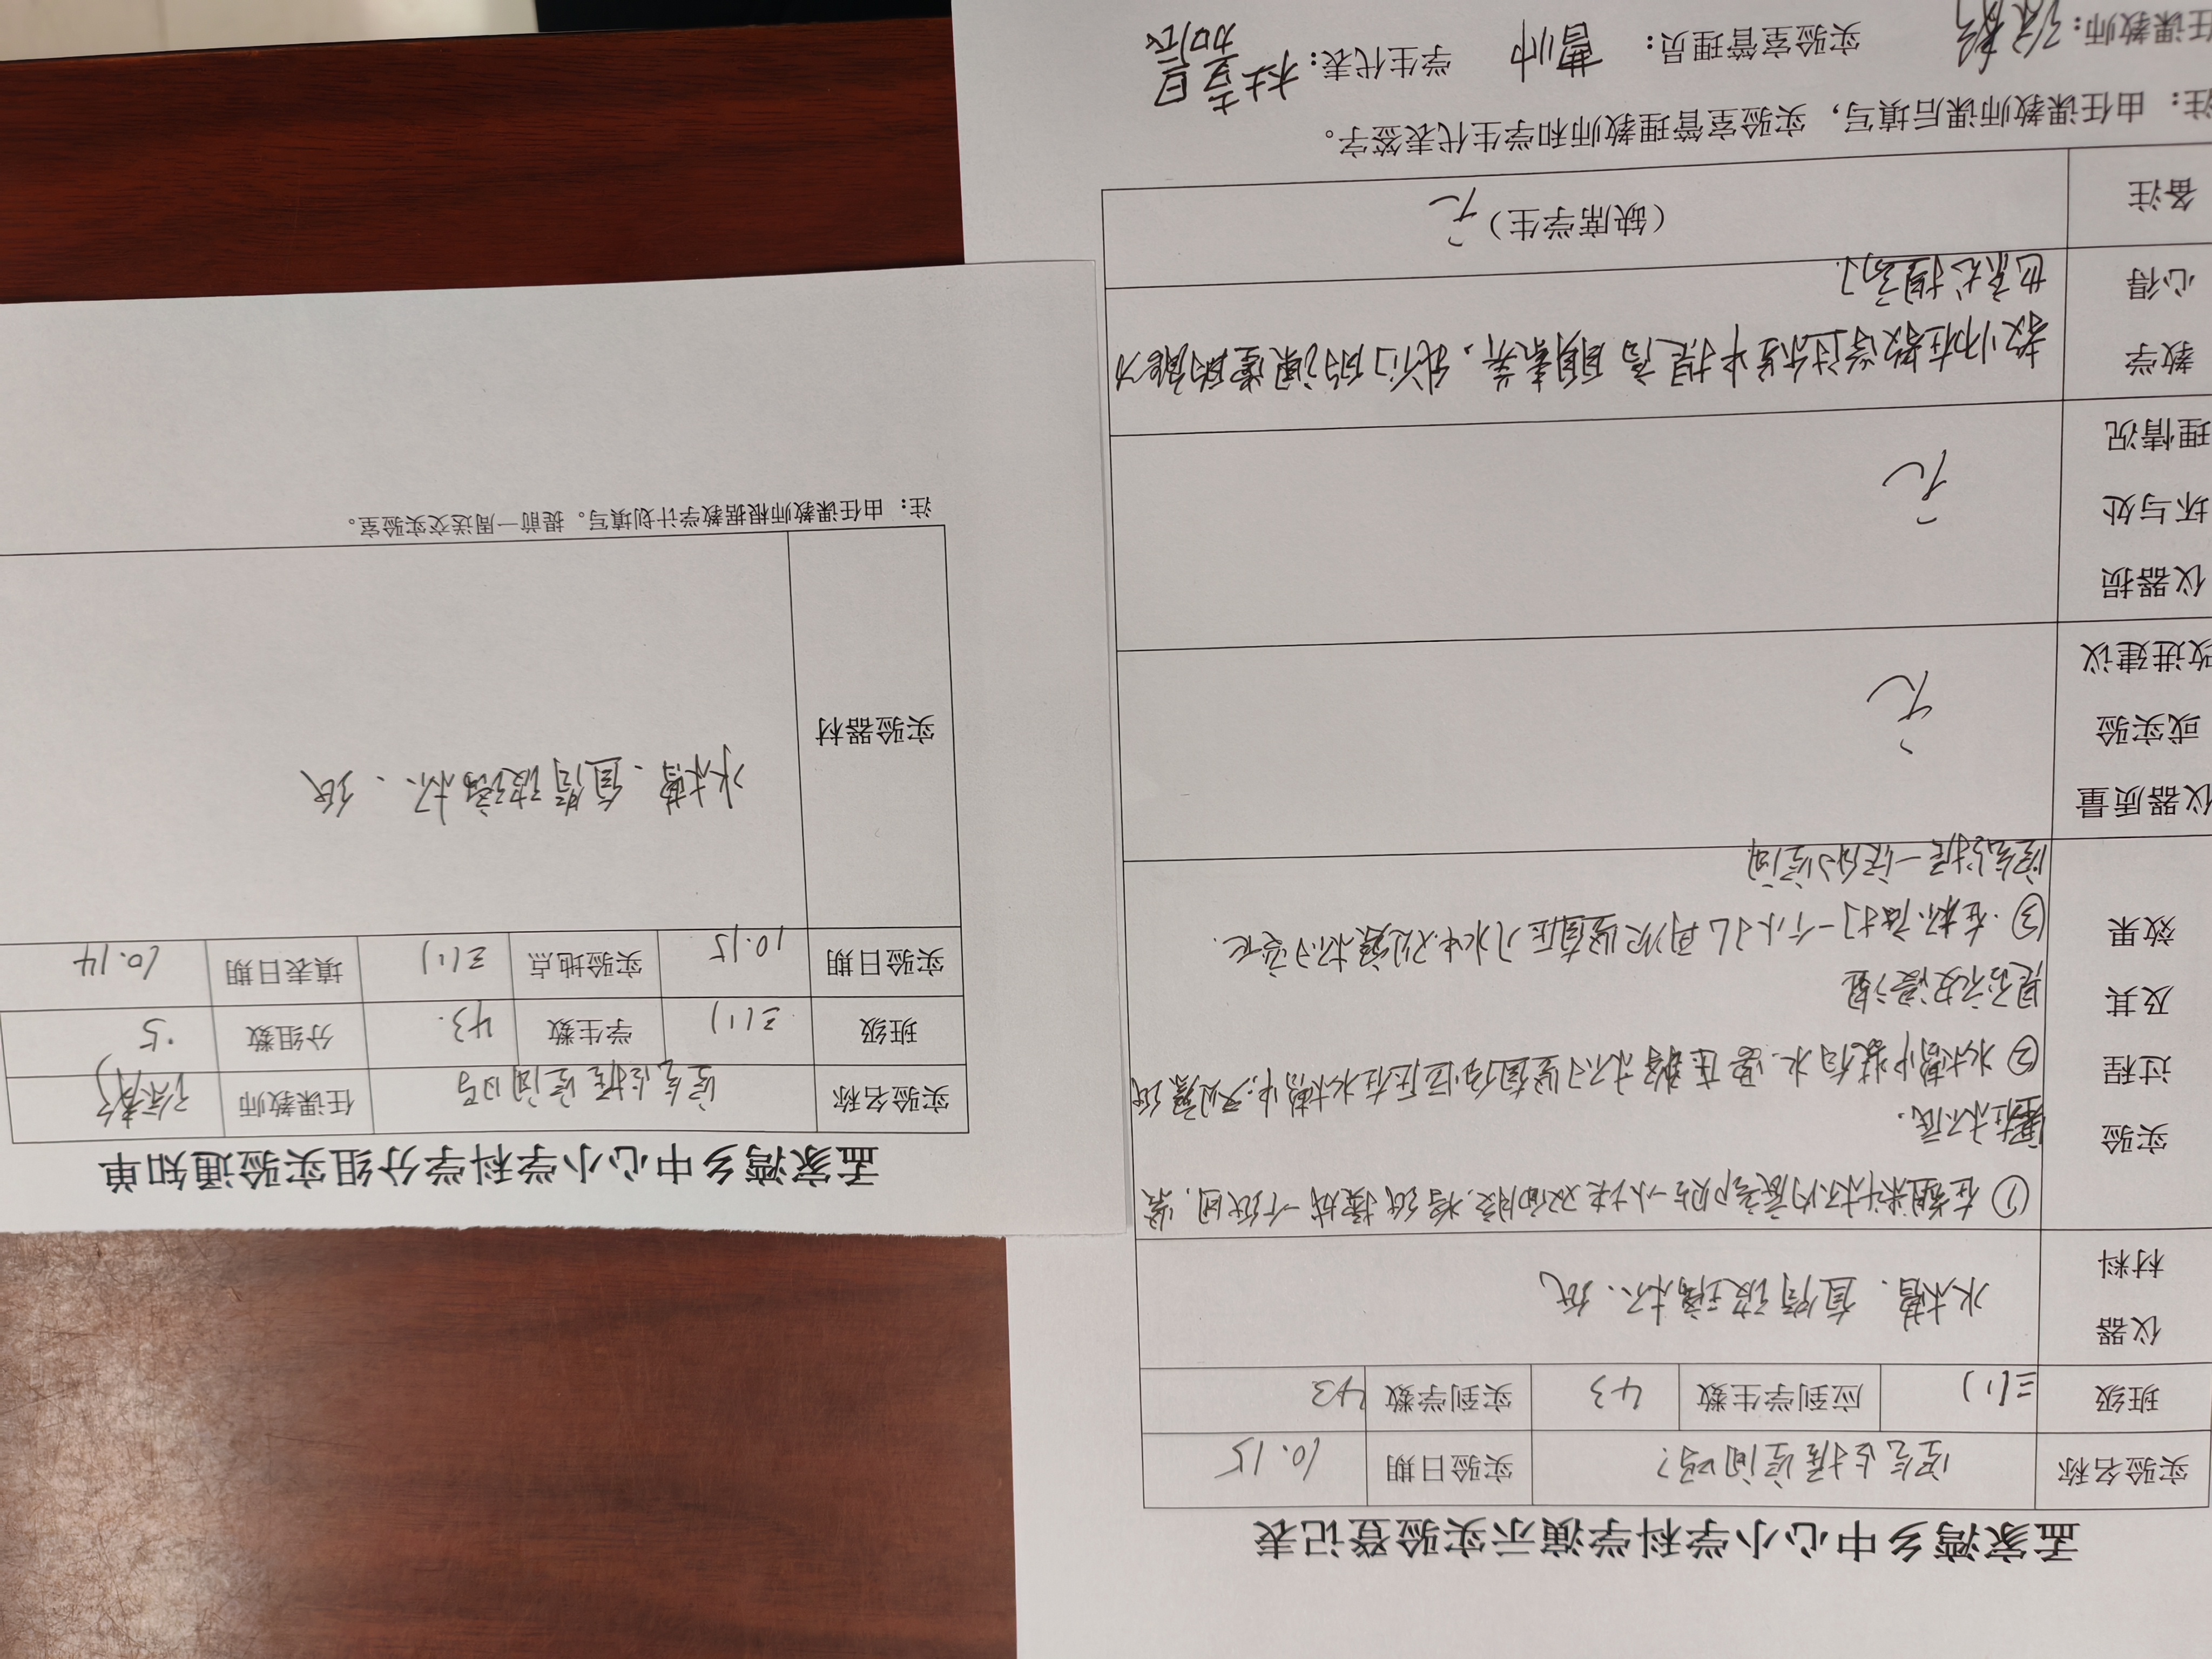 孟家湾乡中心小学科学演示实验登记表
实验名称 空气占据空间吗? 实验日期 10.15
班级 三(1) 应到学生数 43 实到学数 43
仪器材料 水槽、直筒玻璃杯、纸
实验过程及其效果
① 在塑料杯内底部贴一小块双面胶,将纸揉成一个纸团,紧
在杯底.
② 水槽中装白水.
是否被浸湿
③ 在杯底打一个小孔 再次竖直压入水中 观察杯内变化.
空气占据一定的空间
仪器质量或实验改进建议 无
仪器损坏与处理情况 无
教学心得 教师在教学过程中提高 素养,我们的 课堂的能力
也
备注 (缺席学生) 无
注: 由任课教师课后填写, 实验室管理教师和学生代表签字。
任课教师: 实验室管理员: 曹帅 学生代表:
孟家湾乡中心小学科学分组实验通知单
实验名称 空气占据空间吗 任课教师
班级 三(1) 学生数 43. 分组数 5
实验日期 10.15 实验地点 三(1) 填表日期 10.14
实验器材 水槽、直筒玻璃杯、纸
注: 由任课教师根据教学计划填写。提前一周送交实验室。